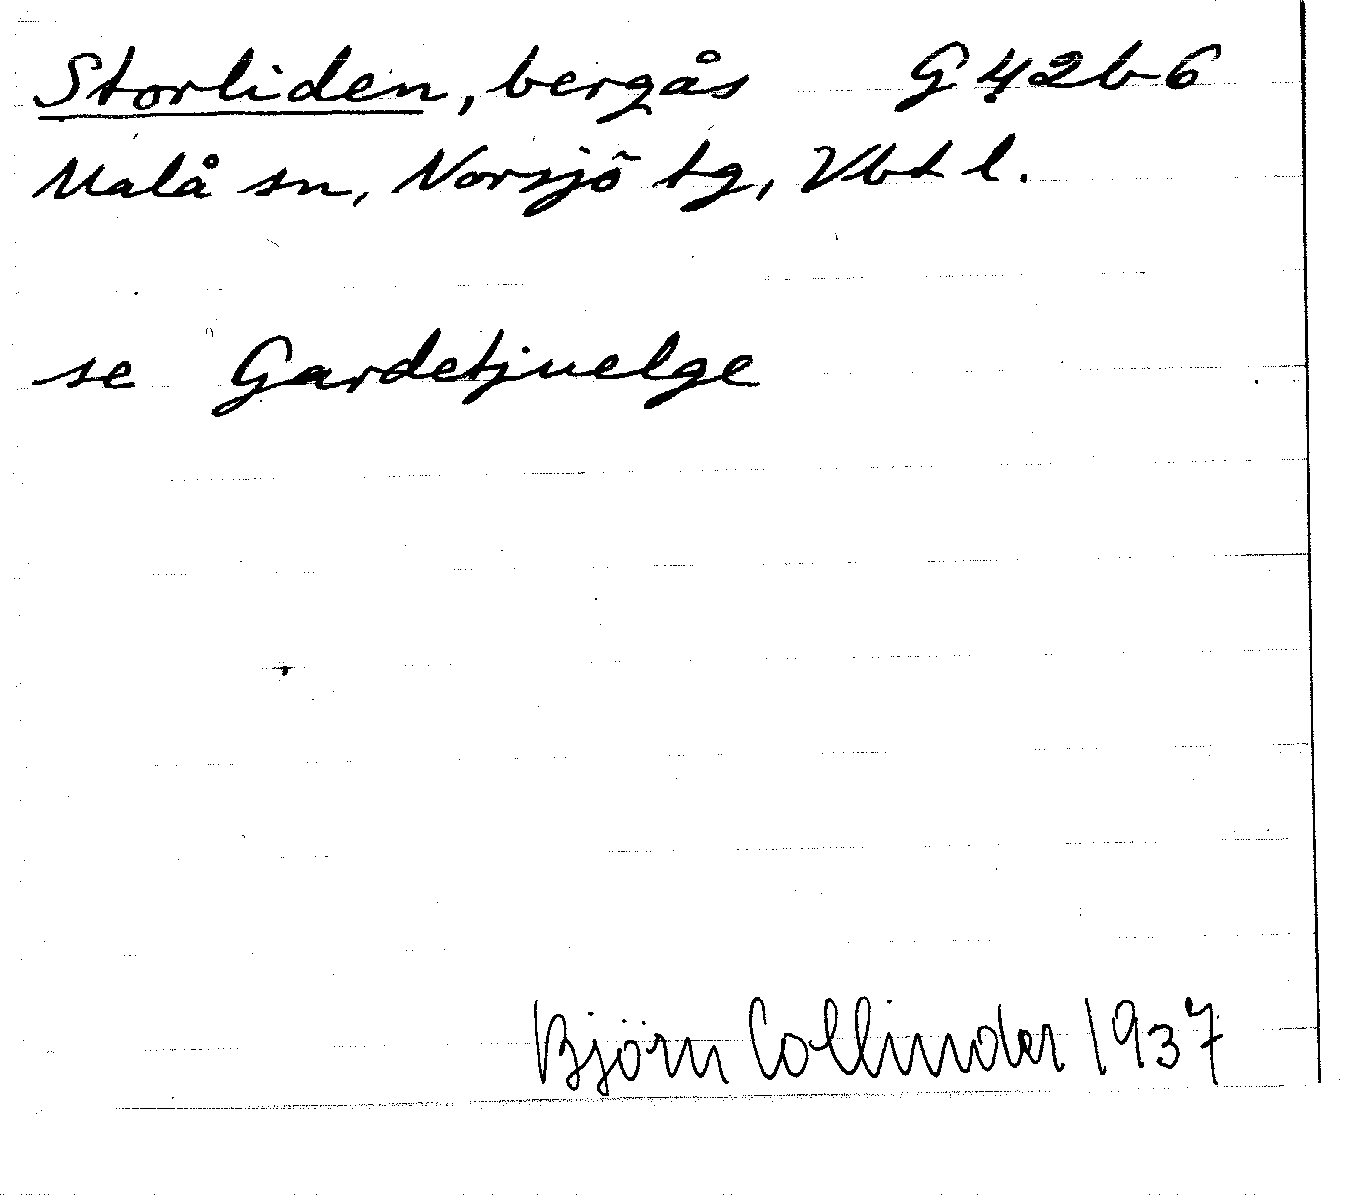 Storliden, bergås G 42 b 6
Malå sn, Norsjö tg, Vbt l.
se Gardetjuelge
Björn Collinder 1937